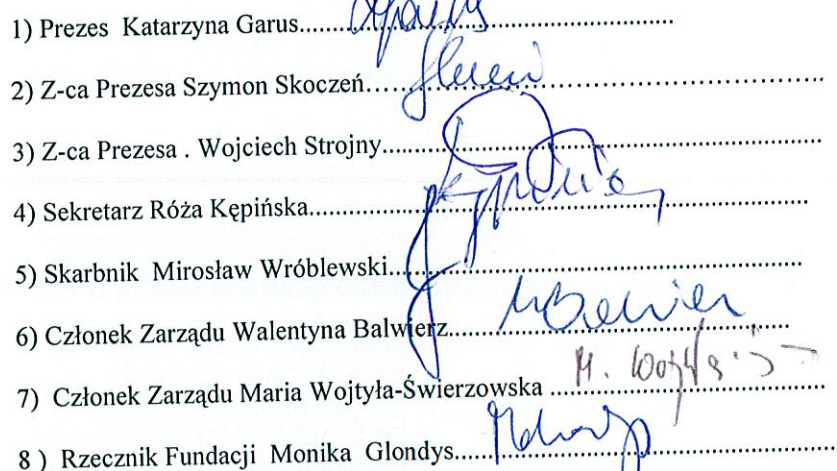 1) Prezes Katarzyna Garus...............................................................
2) Z-ca Prezesa Szymon Skoczeń...............................................................
3) Z-ca Prezesa . Wojciech Strojny...............................................................
4) Sekretarz Róża Kępińska...............................................................
5) Skarbnik Mirosław Wróblewski...............................................................
6) Członek Zarządu Walentyna Balwierz...............................................................
7) Członek Zarządu Maria Wojtyła-Świerzowska ...............................................
8 ) Rzecznik Fundacji Monika Glondys...............................................................